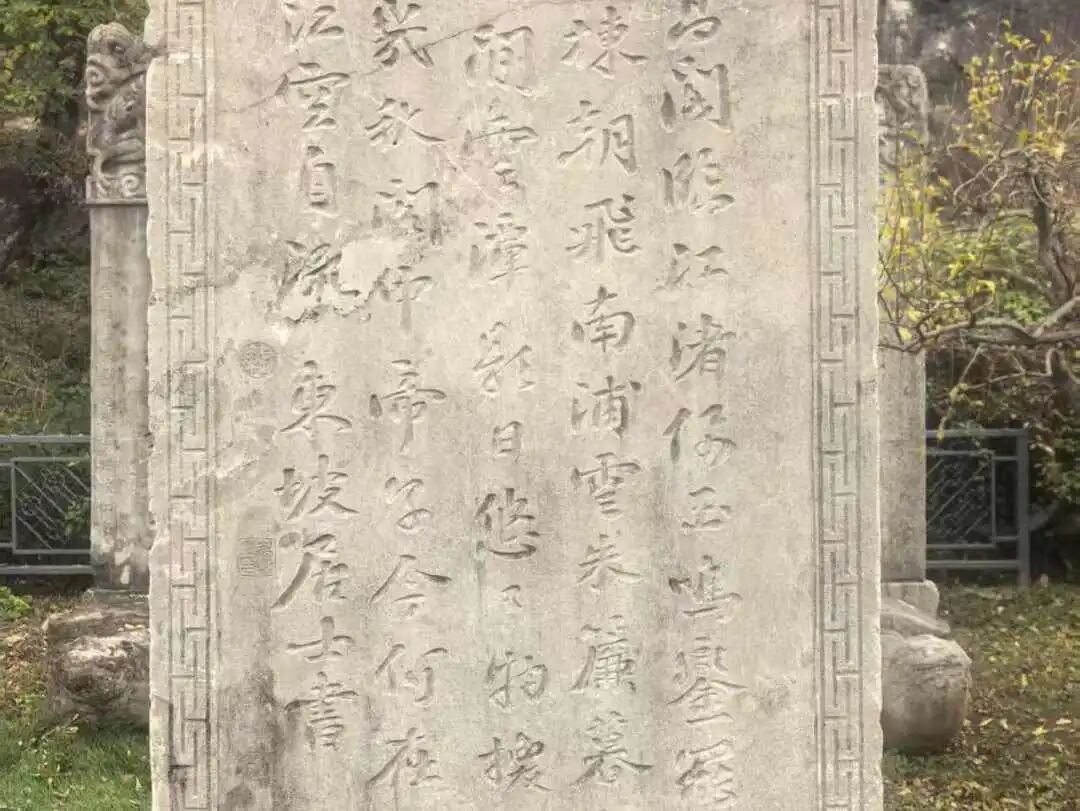 高閣臨江渚佩玉鳴鑾罷
棟朝飛南浦雲朱簾暮
閒雲潭影日悠〻物換
幾秋閣中帝子今何在
江空自流東坡居士書